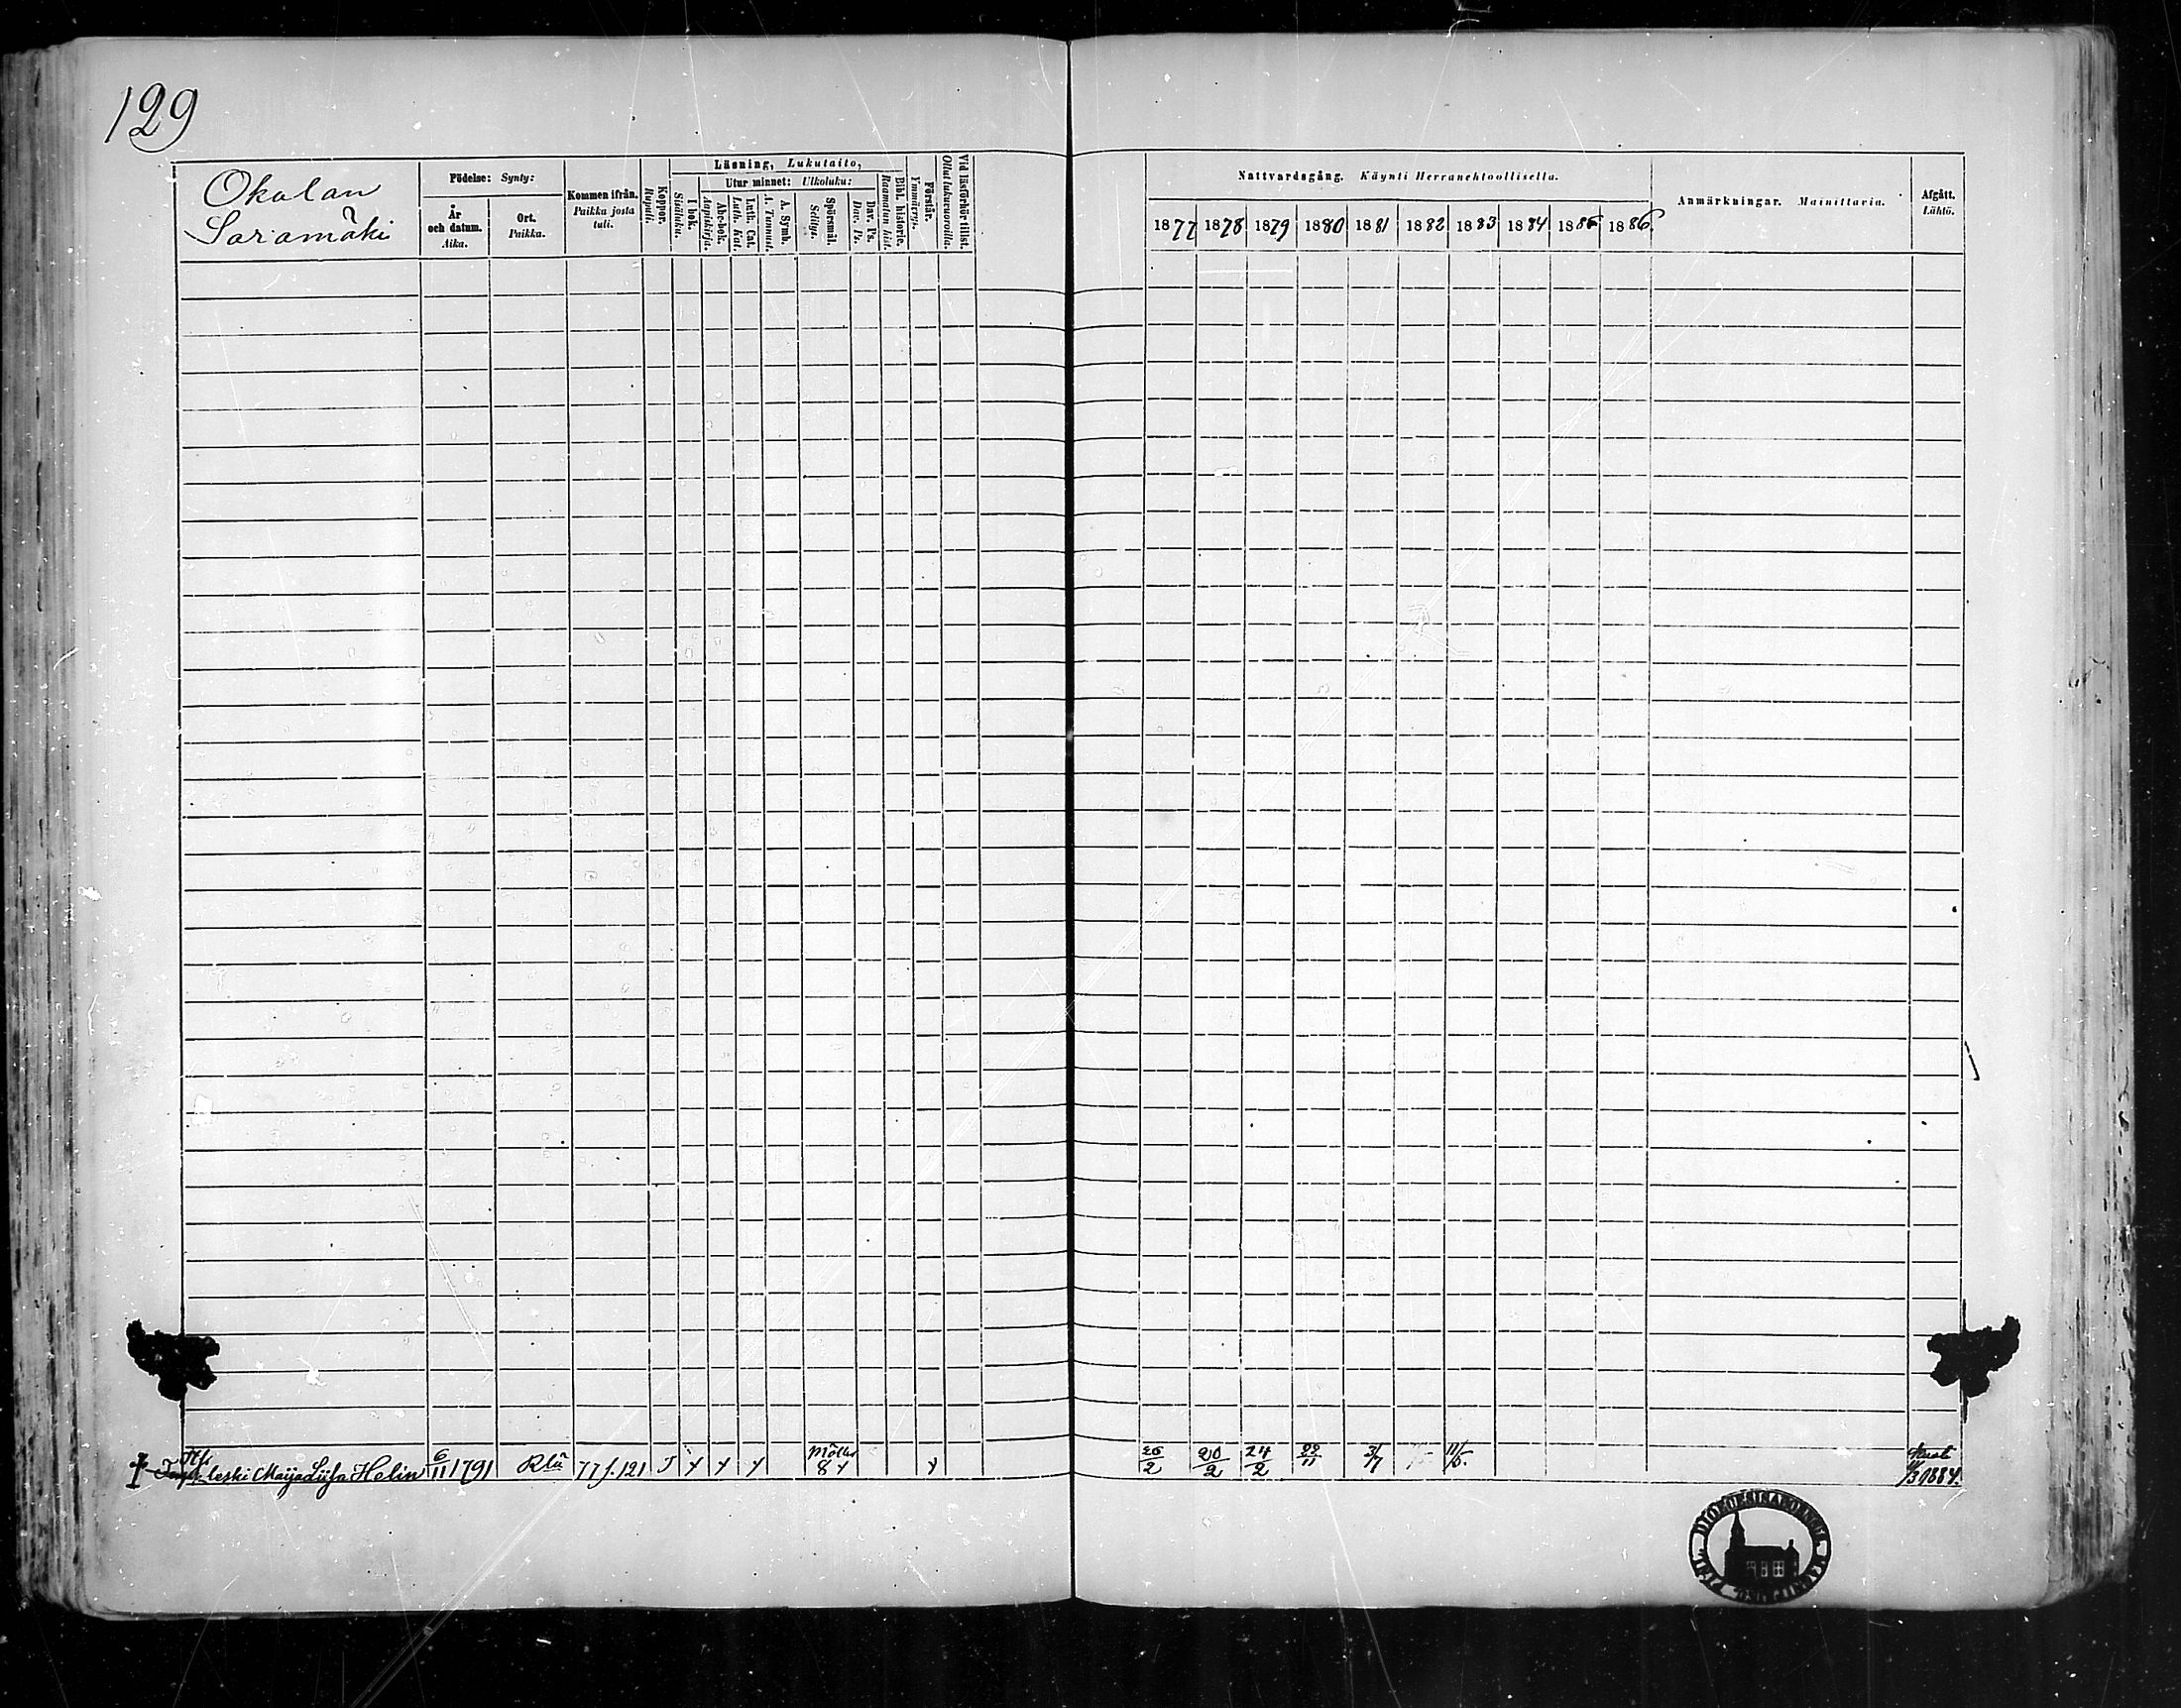 129
Okalan
Saramäki
Födelse: Synty:
År
och datum.
Aika.
Ort.
Paikka.
Kommen ifrån.
Paikka josta
tuli.
Koppor.
Rupuli.
Läsning, Lukutaito,
I bok.
Sisäluku.
Utur minnet: Ulkoluku:
Abc-bok.
Aapiskirja.
Luth. Cat.
Luth. Kat.
A. Symb.
A. Tunnust.
Spörsmål.
Selitys.
Dav. Ps.
Dav. Ps.
Bibl. historie.
Raamatun hist.
Förstår.
Ymmärrys.
Vid läsförhör tillst.
Ollut lukuvuoroilla.
Nattvardsgång. Käynti Herranehtoollisella.
1877 1878 1879 1880 1881 1882 1883 1884 1885 1886.
Anmärkningar. Mainittavia.
Afgått.
Lähtö.
leski Maija Liisa Helin 6/11 1791 77 f. 121 8 26/2 20/2 24/2 22/11 3/7 11/5. 1884.